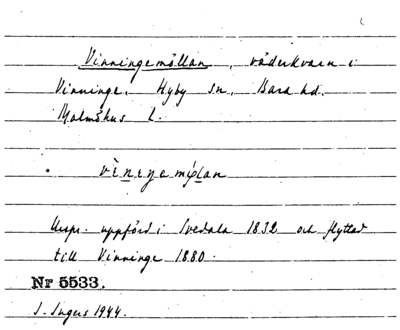 Vinningemöllan, väderkvarn i
Vinninge, Hyby sn, Bara hd.
Malmöhus L.
Urspr. uppförd i Svedala 1832 och flyttad
till Vinninge 1880.
Nr 5533.
I. Ingers 1944.